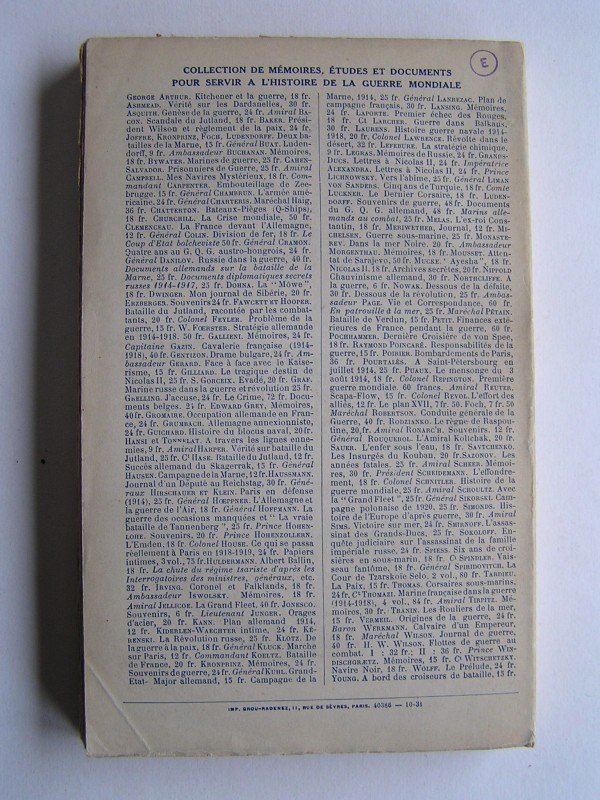 E
COLLECTION DE MÉMOIRES, ÉTUDES ET DOCUMENTS
POUR SERVIR A L'HISTOIRE DE LA GUERRE MONDIALE
GEORGE ARTHUR. Kitchener et la guerre, 18 fr.
ASHMEAD. Vérité sur les Dardanelles, 30 fr.
ASQUITH. Genèse de la guerre, 24 fr. Amiral BA-
CON. Scandale du Jutland, 18 fr. BAKER. Prési-
dent Wilson et règlement de la paix, 24 fr.
JOFFRE, KRONPRINZ, FOCH, LUDENDORFF. Deux ba-
tailles de la Marne, 15 fr. Général BUAT. Luden-
dorff, 9 fr. Ambassadeur BUCHANAN. Mémoires,
18 fr. BYWATER. Marines de guerre, 25 fr. CAHEN-
SALVADOR. Prisonniers de Guerre, 25 fr. Amiral
CAMPBELL. Mes Navires Mystérieux, 18 fr. Com-
mandant CARPENTER. Embouteillage de Zee-
brugge. 15 fr. Général CHAMBRUN. L'armée amé-
ricaine. 24 fr. Général CHARTERIS. Maréchal Haig,
36 fr. CHATTERTON. Bateaux-Pièges (Q-Ships),
18 fr. CHURCHILL. La Crise mondiale, 50 fr.
CLEMENCEAU. La France devant l'Allemagne,
12 fr. Général COLIN. Division de fer, 18 fr. Le
Coup d'Etat bolcheviste 50 fr. Général CRAMON.
Quatre ans au G. Q. G. austro-hongrois, 24 fr.
Général DANILOV. Russie dans la guerre, 40 fr.
Documents allemands sur la bataille de la
Marne, 25 fr. Documents diplomatiques secrets
russes 1914-1917, 25 fr. DOHNA. La "Möwe",
18 fr. DWINGER. Mon journal de Sibérie, 20 fr.
ERZBERGER. Souvenirs 24 fr. FAWCETT ET HOOPER.
Bataille du Jutland, racontée par les combat-
tants, 20 fr. Colonel FEYLER. Problème de la
guerre, 15 fr. W. FŒRSTER. Stratégie allemande
en 1914-1918. 50 fr. GALLIENI. Mémoires, 24 fr.
Capitaine GAZIN. Cavalerie française (1914-
1918), 40 fr. GENTIZON. Drame bulgare, 24 fr. Am-
bassadeur GERARD. Face à face avec le Kaise-
risme, 15 fr. GILLIARD. Le tragique destin de
Nicolas II, 25 fr. S. GORCEIX. Evadé, 20 fr. GRAF.
Marine russe dans la guerre et révolution 25 fr.
GRELLING. J'accuse, 24 fr. Le Crime, 72 fr. Docu-
ments belges. 24 fr. EDWARD GREY, Mémoires,
40 fr. GROMAIRE. Occupation allemande en Fran-
ce, 24 fr. GRUMBACH. Allemagne annexionniste,
24 fr. GUICHARD. Histoire du blocus naval, 20 fr.
HANSI et TONNELAT. A travers les lignes enne-
mies, 9 fr. Amiral HARPER. Vérité sur bataille du
Jutland, 25 fr. Ct HASE. Bataille du Jutland, 12 fr.
Succès allemand du Skagerrak, 15 fr. Général
HAUSEN. Campagne de la Marne, 12 fr. HAUSSMANN.
Journal d'un Député au Reichstag, 30 fr. Géné-
raux HIRSCHAUER ET KLEIN. Paris en défense
(1914), 25 fr. Général HŒPPNER. L'Allemagne et
la guerre de l'Air, 18 fr. Général HOFFMANN. La
guerre des occasions manquées et "La vraie
bataille de Tannenberg", 25 fr. Prince HOHEN-
LOHE. Souvenirs, 20 fr. Prince HOHENZOLLERN.
L'Emden, 18 fr. Colonel HOUSE. Ce qui se passa
réellement à Paris en 1918-1919, 24 fr. Papiers
intimes, 3 vol., 75 fr. HULDERMANN. Albert Ballin,
18 fr. La chute du régime tsariste d'après les
Interrogatoires des ministres, généraux, etc.
32 fr. IRVING. Coronel et Falklands, 18 fr.
Ambassadeur ISWOLSKY. Mémoires, 18 fr.
Amiral JELLICOE. La Grand Fleet, 40 fr. JONESCO.
Souvenirs, 6 fr. Lieutenant JUNGER. Orages
d'acier, 20 fr. KANN. Plan allemand 1914,
12 fr. KIDERLEN-WAECHTER intime, 24 fr. KÉ-
RENSKI. La Révolution russe, 25 fr. KLOTZ. De
la guerre à la paix, 18 fr. Général KLUCK. Marche
sur Paris, 12 fr. Commandant KOELTZ. Bataille
de France, 20 fr. KRONPRINZ. Mémoires, 24 fr.
Souvenirs de guerre, 24 fr. Général KUHL. Grand-
Etat- Major allemand, 15 fr. Campagne de la
Marne, 1914, 25 fr. Général LANREZAC. Plan de
campagne français, 30 fr. LANSING. Mémoires,
24 fr. LAPORTE. Premier échec des Rouges,
18 fr. Ct LARCHER. Guerre dans Balkans
30 fr. LAURENS. Histoire guerre navale 1914-
1918, 20 fr. Colonel LAWRENCE. Révolte dans le
désert, 32 fr. LEFEBURE. La stratégie chimique,
9 fr. LEGRAS. Mémoires de Russie, 24 fr. GRANDS-
DUCS. Lettres à Nicolas II, 24 fr. Impératrice
ALEXANDRA. Lettres à Nicolas II, 24 fr. Prince
LICHNOWSKY. Vers l'abîme, 25 fr. Général LIMAN
VON SANDERS. Cinq ans de Turquie, 18 fr. Comte
LUCKNER. Le Dernier Corsaire, 18 fr. LUDEN-
DORFF. Souvenirs de guerre, 48 fr. Documents
du G. Q. G. allemand, 48 fr. Marins alle-
mands au combat, 25 fr. MELAS. L'ex-roi Cons-
tantin, 18 fr. MERIWETHER, Journal, 12 fr. MI-
CHELSEN. Guerre sous-marine, 25 fr. MONASTE-
REV. Dans la mer Noire. 20 fr. Ambassadeur
MORGENTHAU. Mémoires, 18 fr. MOUSSET. Atten-
tat de Sarajevo, 50 fr. MUCKE. "Ayesha", 18 fr.
NICOLAS II, 18 fr. Archives secrètes, 20 fr. NIPPOLD
Chauvinisme allemand, 30 fr. NORTHCLIFFE. A
la guerre, 6 fr. NOWAK. Dessous de la défaite,
30 fr. Dessous de la révolution, 25 fr. Ambas-
sadeur PAGE. Vie et Correspondance, 60 fr.
En patrouille à la mer, 25 fr. Maréchal PÉTAIN.
Bataille de Verdun, 15 fr. PETIT. Finances exté-
rieures de France pendant la guerre, 60 fr.
POCHHAMMER. Dernière Croisière de von Spee,
18 fr. RAYMOND POINCARÉ. Responsabilités de la
guerre, 15 fr. POIRIER. Bombardements de Paris,
36 fr. POURTALÈS. A Saint-Pétersbourg en
juillet 1914, 25 fr. PUAUX. Le mensonge du 3
août 1914, 18 fr. Colonel REPINGTON. Première
guerre mondiale 60 francs. Amiral REUTER.
Scapa-Flow, 15 fr. Colonel REVOL. L'effort des
alliés, 12 fr. Le plan XVII, 7 fr. 50. Foch, 7 fr. 50
Maréchal ROBERTSON. Conduite générale de la
Guerre, 40 fr. RODZIANKO. Le règne de Raspou-
tine, 20, fr. Amiral RONARC'H. Souvenirs. 12 fr.
Général ROUQUEROL. L'Amiral Kolichak, 20 fr.
SAUER. L'enfer sous l'eau, 18 fr. SAVTCHENKO.
Les Insurgés du Kouban, 20 fr. SAZONOV. Les
années fatales. 25 fr. Amiral SCHEER. Mémoi-
res, 30 fr. Président SCHEIDEMANN. L'effondre-
ment, 18 fr. Colonel SCHNITLER. Histoire de la
guerre mondiale, 25 fr. Amiral SCHOULTZ. Avec
la "Grand Fleet", 25 fr. Général SIKORSKI. Cam-
pagne polonaise de 1920, 25 fr. SIMONDS. His-
toire de l'Europe d'après guerre, 30 fr. Amiral
SIMS. Victoire sur mer, 24 fr. SMIRNOFF. L'assas-
sinat des Grands-Ducs, 25 fr. SOKOLOFF. En-
quête judiciaire sur l'assassinat de la famille
impériale russe, 24 fr. SPIESS. Six ans de croi-
sières en sous-marin, 18 fr. Ct SPINDLER. Vais-
seau fantôme, 18 fr. Général SPIRIDOVITCH. La
Cour de Tzarskoïe Selo, 2 vol., 80 fr. TARDIEU.
La Paix, 15 fr. THOMAS. Corsaires sous-marins,
24 fr. Ct THOMAZI. Marine française dans la guerre
(1914-1918), 4 vol., 84 fr. Amiral TIRPITZ. Mé-
moires, 30 fr. TRANIN. Les Rouliers de la mer,
15 fr. VERMEIL. Origines de la guerre, 24 fr.
Baron WERKMANN. Calvaire d'un Empereur,
18 fr. Maréchal WILSON. Journal de guerre,
40 fr. H. W. WILSON. Flottes de guerre au
combat. I : 32 fr. ; II : 36 fr. Prince WIN-
DISCHGRÆTZ. Mémoires, 15 fr. Ct WITSCHETZKY.
Navire Noir, 18 fr. WOLFF. Le Prélude, 24 fr.
YOUNG. A bord des croiseurs de bataille, 15 fr.
IMP. BROU-RADENEZ, 11, RUE DE SÈVRES, PARIS. 40386 — 10-31